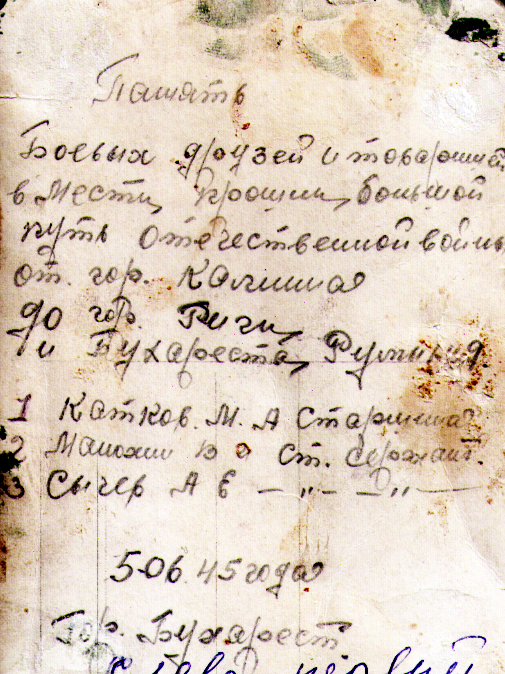 Память
Боевых друзей и товарищей
в мести, прошли, большой
путь Отечественной войны
от. гор. Калинина
до гор. Риги,
и Бухареста, Румыния
1 Катков. М. А Старшина
2 В ст. Сержант.
3 Сычев А Е — „ — „ —
5-06.45 года
Гор. Бухарест.
слева первый